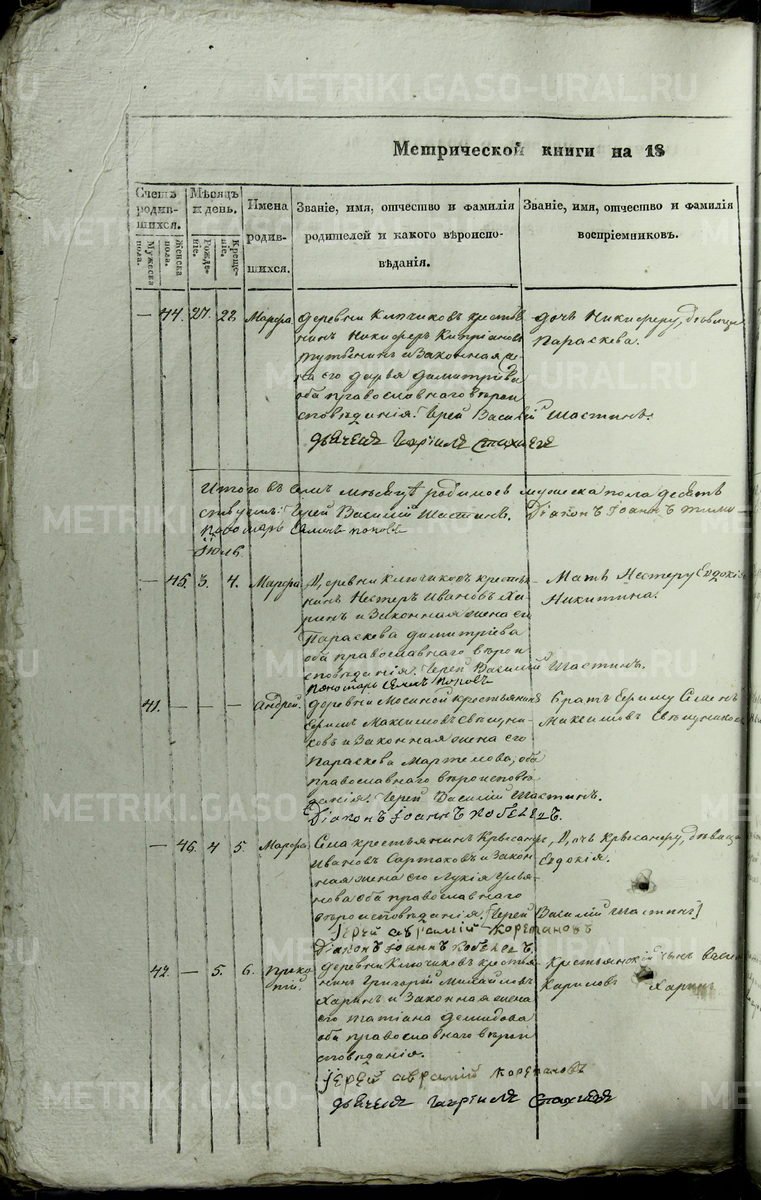 METRIKI.GASO-URAL.RU
Метрической книги на 18
Счетъ родив-шихся.
Мужеска пола.
Женска пола.
Мѣсяцъ и день.
Рожде-ніе.
Креще-ніе.
Имена родив-шихся.
Званіе, имя, отчество и фамилія родителей и какого вѣроиспо-вѣданія.
Званіе, имя, отчество и фамилія воспріемниковъ.
— 44. 21. 22. Марфа
деревни Ключиковъ крестья-
нинъ Никифоръ Кипріановъ
и Законная же-
на его Дарья Димитріева
оба православнаго вѣрои
сповѣданія. Іерей Василій Шастинъ.
дьячекъ Гавріилъ
дочь Никифору, дѣвица
Параскева.
Итого въ семъ мѣсяцѣ родилось мужеска пола десять
Іерей Василій Шастинъ. Діаконъ Іоаннъ
Пономарь Семенъ Поповъ
Іюль
— 45. 3. 4. Марфа.
Деревни Ключиковъ крестья-
нинъ Нестеръ Ивановъ Ха-
ринъ и Законная жена его
Параскева Димитріева
оба православнаго вѣрои
сповѣданія. Іерей Василій Шастинъ.
Пономарь Семенъ Поповъ
Мать Нестеру Евдокія
Никитина.
41. — — — Андрей.
деревни крестьянинъ
Ефимъ Максимовъ
ковъ и Законная жена его
Параскева, оба
православнаго вѣроисповѣ
данія. Іерей Василій Шастинъ.
Діаконъ Іоаннъ
Братъ Ефиму Семенъ
Максимовъ
— 46. 4 5. Марфа.
Села крестьянинъ
Ивановъ Сартаковъ и Закон-
ная жена его Лукія Улья-
нова оба православнаго
вѣроисповѣданія. [Іерей Василій Шастинъ]
Іерей Аврамій Корепановъ
Діаконъ Іоаннъ
Дочь, дѣвица
Евдокія.
42. — 5. 6. Проко-
пій.
деревни Ключиковъ крестья-
нинъ Григорій Михайловъ
Харинъ и Законная жена
его Татіана Демидова
оба православнаго вѣрои
сповѣданія.
Іерей Аврамій Корепановъ
дьячекъ Гавріилъ
Крестьянскій сынъ
Кариловъ Харинъ